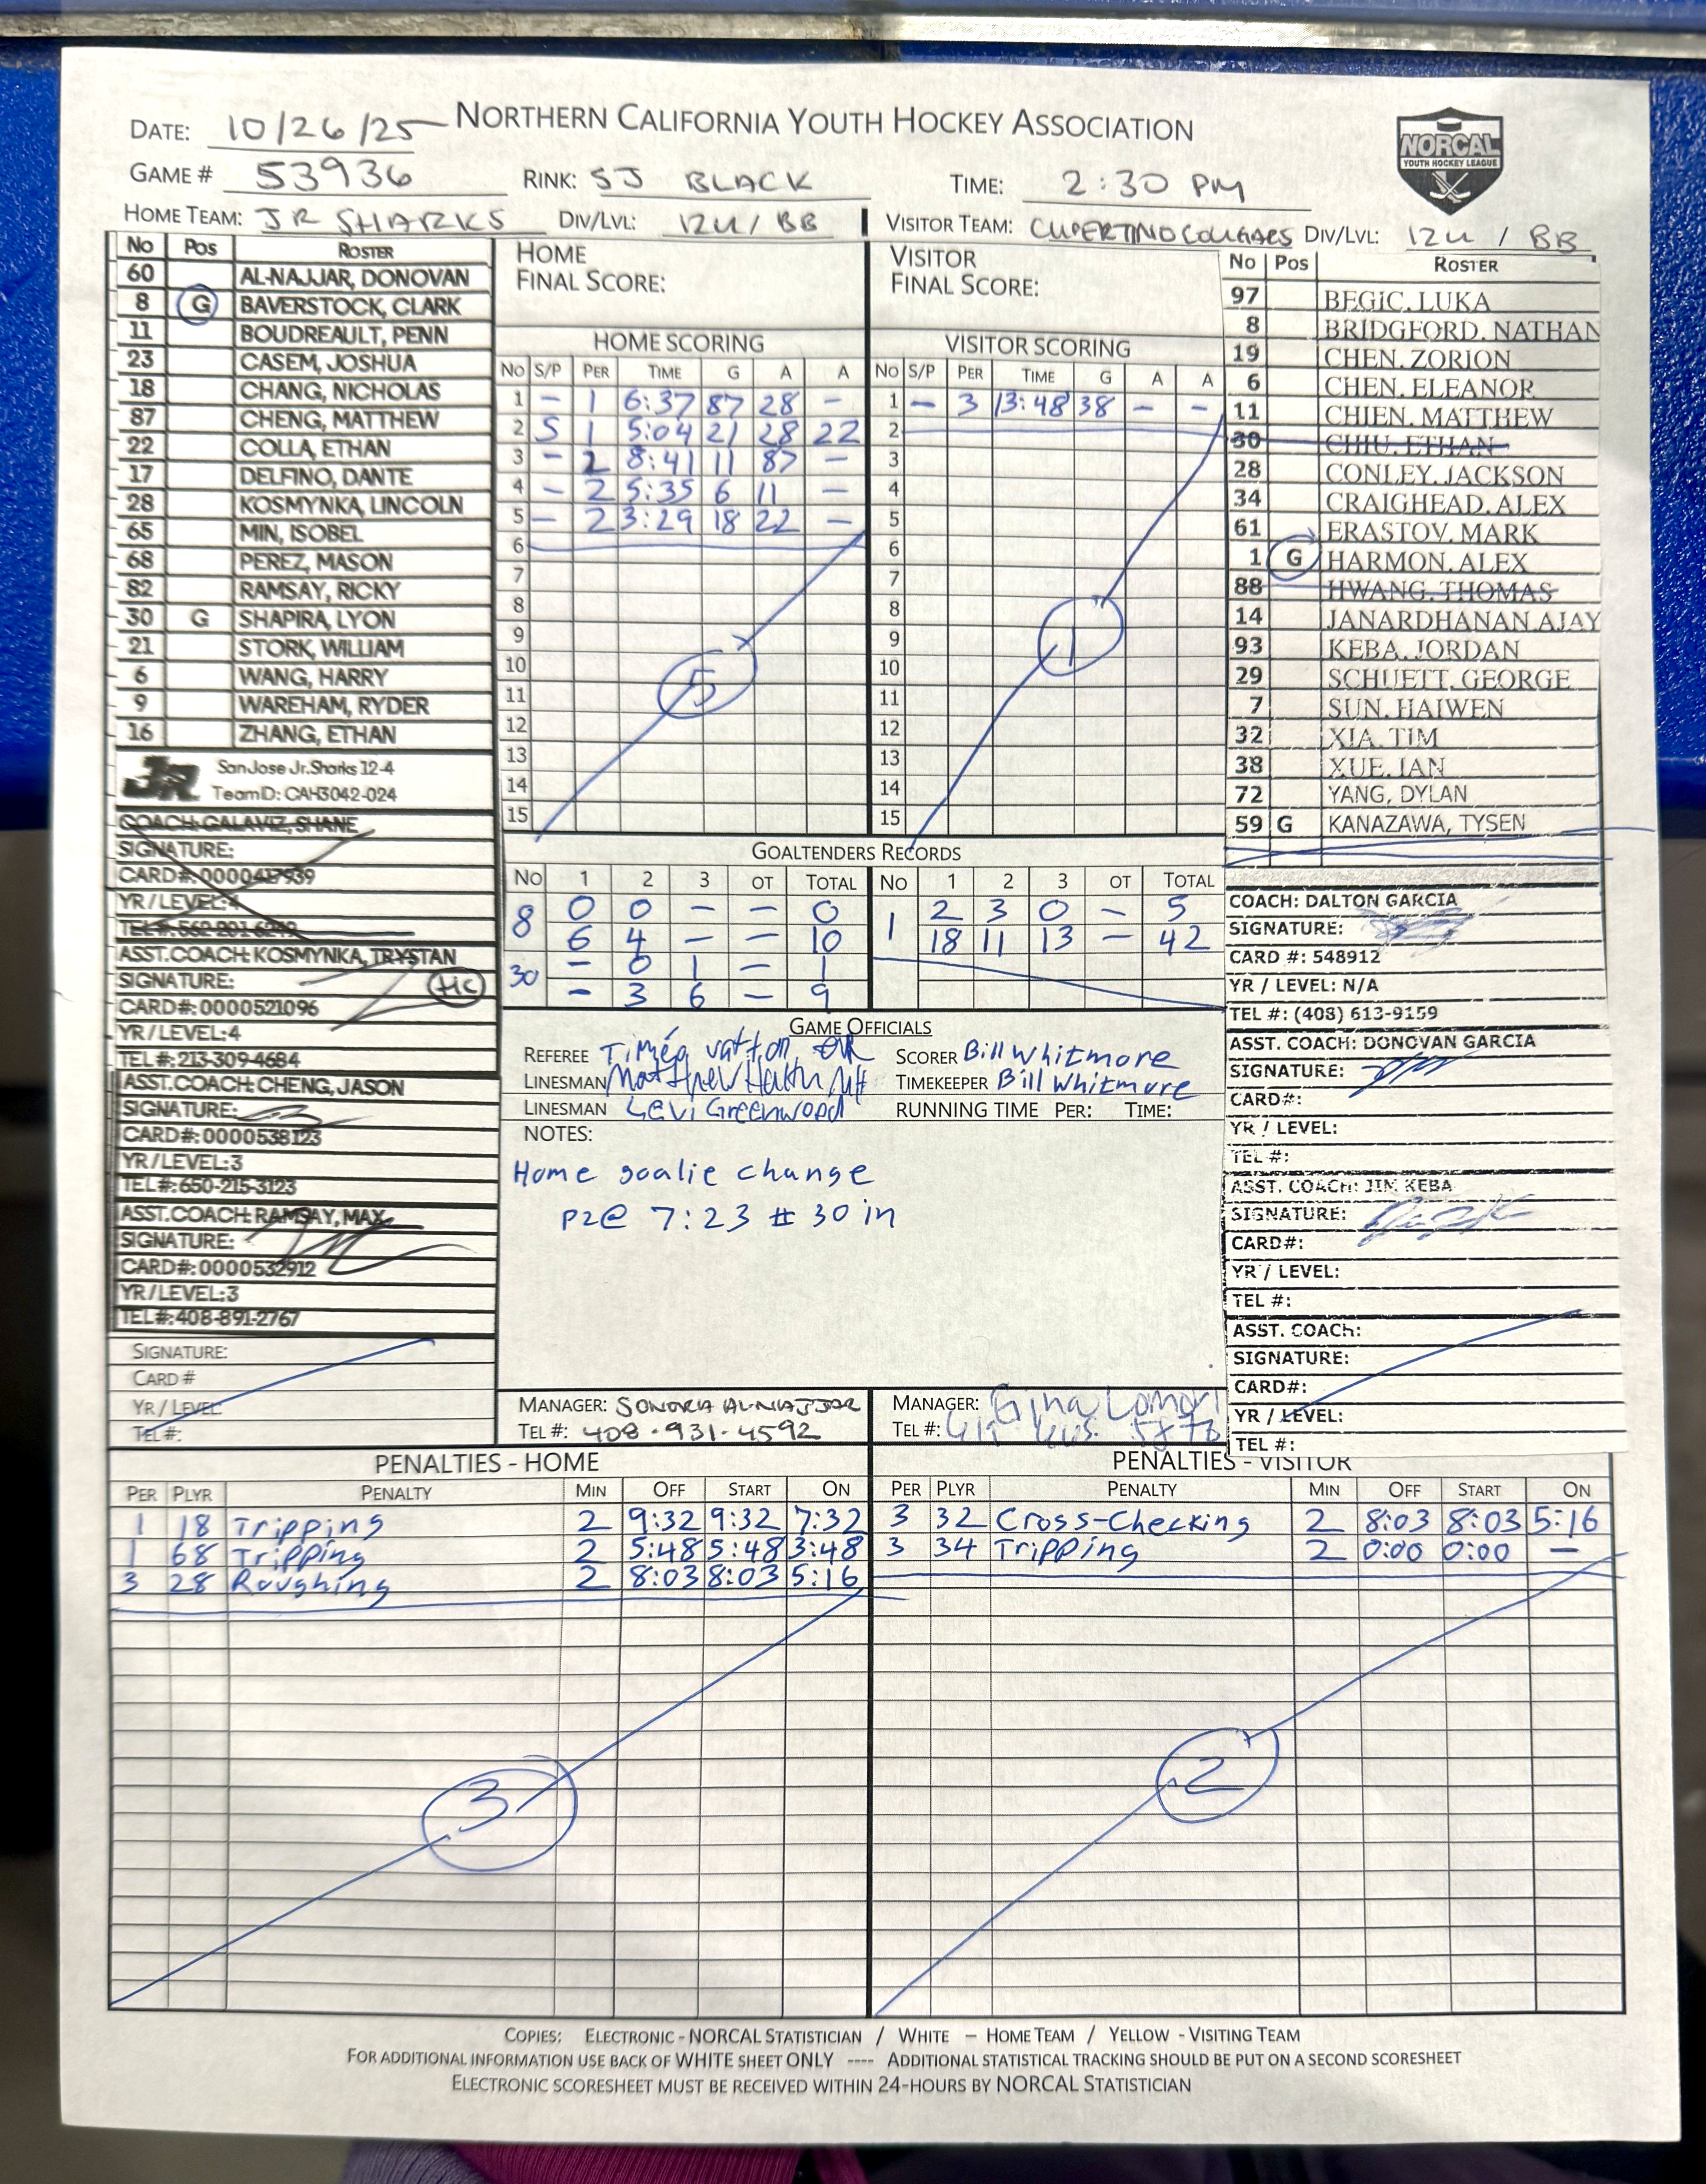 NORTHERN CALIFORNIA YOUTH HOCKEY ASSOCIATION
NORCAL
YOUTH HOCKEY LEAGUE
DATE: 10/26/25
GAME # 53936 RINK: SJ BLACK TIME: 2:30 PM
HOME TEAM: JR SHARKS DIV/LVL: 12U / BB VISITOR TEAM: CUPERTINO COUGARS DIV/LVL: 12U / BB
No Pos ROSTER
60 AL-NAJJAR, DONOVAN
8 G BAVERSTOCK, CLARK
11 BOUDREAULT, PENN
23 CASEM, JOSHUA
18 CHANG, NICHOLAS
87 CHENG, MATTHEW
22 COLLA, ETHAN
17 DELFINO, DANTE
28 KOSMYNKA, LINCOLN
65 MIN, ISOBEL
68 PEREZ, MASON
82 RAMSAY, RICKY
30 G SHAPIRA, LYON
21 STORK, WILLIAM
6 WANG, HARRY
9 WAREHAM, RYDER
16 ZHANG, ETHAN
JR
San Jose Jr. Sharks 12-4
Team ID: CAH3042-024
COACH: GALAVIZ, SHANE
SIGNATURE:
CARD#: 0000417939
YR/LEVEL: 4
TEL#: 562-201-6249
ASST. COACH: KOSMYNKA, TRYSTAN
SIGNATURE: HC
CARD#: 0000521096
YR/LEVEL: 4
TEL#: 213-309-4684
ASST. COACH: CHENG, JASON
SIGNATURE:
CARD#: 0000538123
YR/LEVEL: 3
TEL#: 650-215-3123
ASST. COACH: RAMSAY, MAX
SIGNATURE:
CARD#: 0000532912
YR/LEVEL: 3
TEL#: 408-891-2767
SIGNATURE:
CARD #
YR / LEVEL:
TEL #:
HOME
FINAL SCORE:
HOME SCORING
NO S/P PER TIME G A A
1 – 1 6:37 87 28 –
2 S 1 5:04 21 28 22
3 – 2 8:41 11 87 –
4 – 2 5:35 6 11 –
5 – 2 3:29 18 22 –
6
7
8
9
10
11
12
13
14
15
5
VISITOR
FINAL SCORE:
VISITOR SCORING
NO S/P PER TIME G A A
1 – 3 13:48 38 – –
2
3
4
5
6
7
8
9
10
11
12
13
14
15
1
No Pos ROSTER
97 BEGIC, LUKA
8 BRIDGFORD, NATHAN
19 CHEN, ZORION
6 CHEN, ELEANOR
11 CHIEN, MATTHEW
30 CHIU, ETHAN
28 CONLEY, JACKSON
34 CRAIGHEAD, ALEX
61 ERASTOV, MARK
1 G HARMON, ALEX
88 HWANG, THOMAS
14 JANARDHANAN AJAY
93 KEBA, JORDAN
29 SCHUETT, GEORGE
7 SUN, HAIWEN
32 XIA, TIM
38 XUE, IAN
72 YANG, DYLAN
59 G KANAZAWA, TYSEN
COACH: DALTON GARCIA
SIGNATURE:
CARD #: 548912
YR / LEVEL: N/A
TEL #: (408) 613-9159
ASST. COACH: DONOVAN GARCIA
SIGNATURE:
CARD#:
YR / LEVEL:
TEL #:
ASST. COACH: JIM KEBA
SIGNATURE:
CARD#:
YR / LEVEL:
TEL #:
ASST. COACH:
SIGNATURE:
CARD#:
YR / LEVEL:
TEL #:
GOALTENDERS RECORDS
NO 1 2 3 OT TOTAL NO 1 2 3 OT TOTAL
8 0 0 – – 0 1 2 3 0 – 5
6 4 – – 10 18 11 13 – 42
30 – 0 1 – 1
– 3 6 – 9
GAME OFFICIALS
REFEREE SCORER Bill Whitmore
LINESMAN Matthew TIMEKEEPER Bill Whitmore
LINESMAN Levi Greenwood RUNNING TIME PER: TIME:
NOTES:
Home goalie change
P2@ 7:23 # 30 in
MANAGER: SONORA AL-NAJJAR MANAGER: Gina
TEL #: 408.931.4592 TEL #:
PENALTIES - HOME
PER PLYR PENALTY MIN OFF START ON
1 18 Tripping 2 9:32 9:32 7:32
1 68 Tripping 2 5:48 5:48 3:48
3 28 Roughing 2 8:03 8:03 5:16
3
PENALTIES - VISITOR
PER PLYR PENALTY MIN OFF START ON
3 32 Cross-Checking 2 8:03 8:03 5:16
3 34 Tripping 2 0:00 0:00 –
2
COPIES: ELECTRONIC - NORCAL STATISTICIAN / WHITE – HOME TEAM / YELLOW - VISITING TEAM
FOR ADDITIONAL INFORMATION USE BACK OF WHITE SHEET ONLY ---- ADDITIONAL STATISTICAL TRACKING SHOULD BE PUT ON A SECOND SCORESHEET
ELECTRONIC SCORESHEET MUST BE RECEIVED WITHIN 24-HOURS BY NORCAL STATISTICIAN